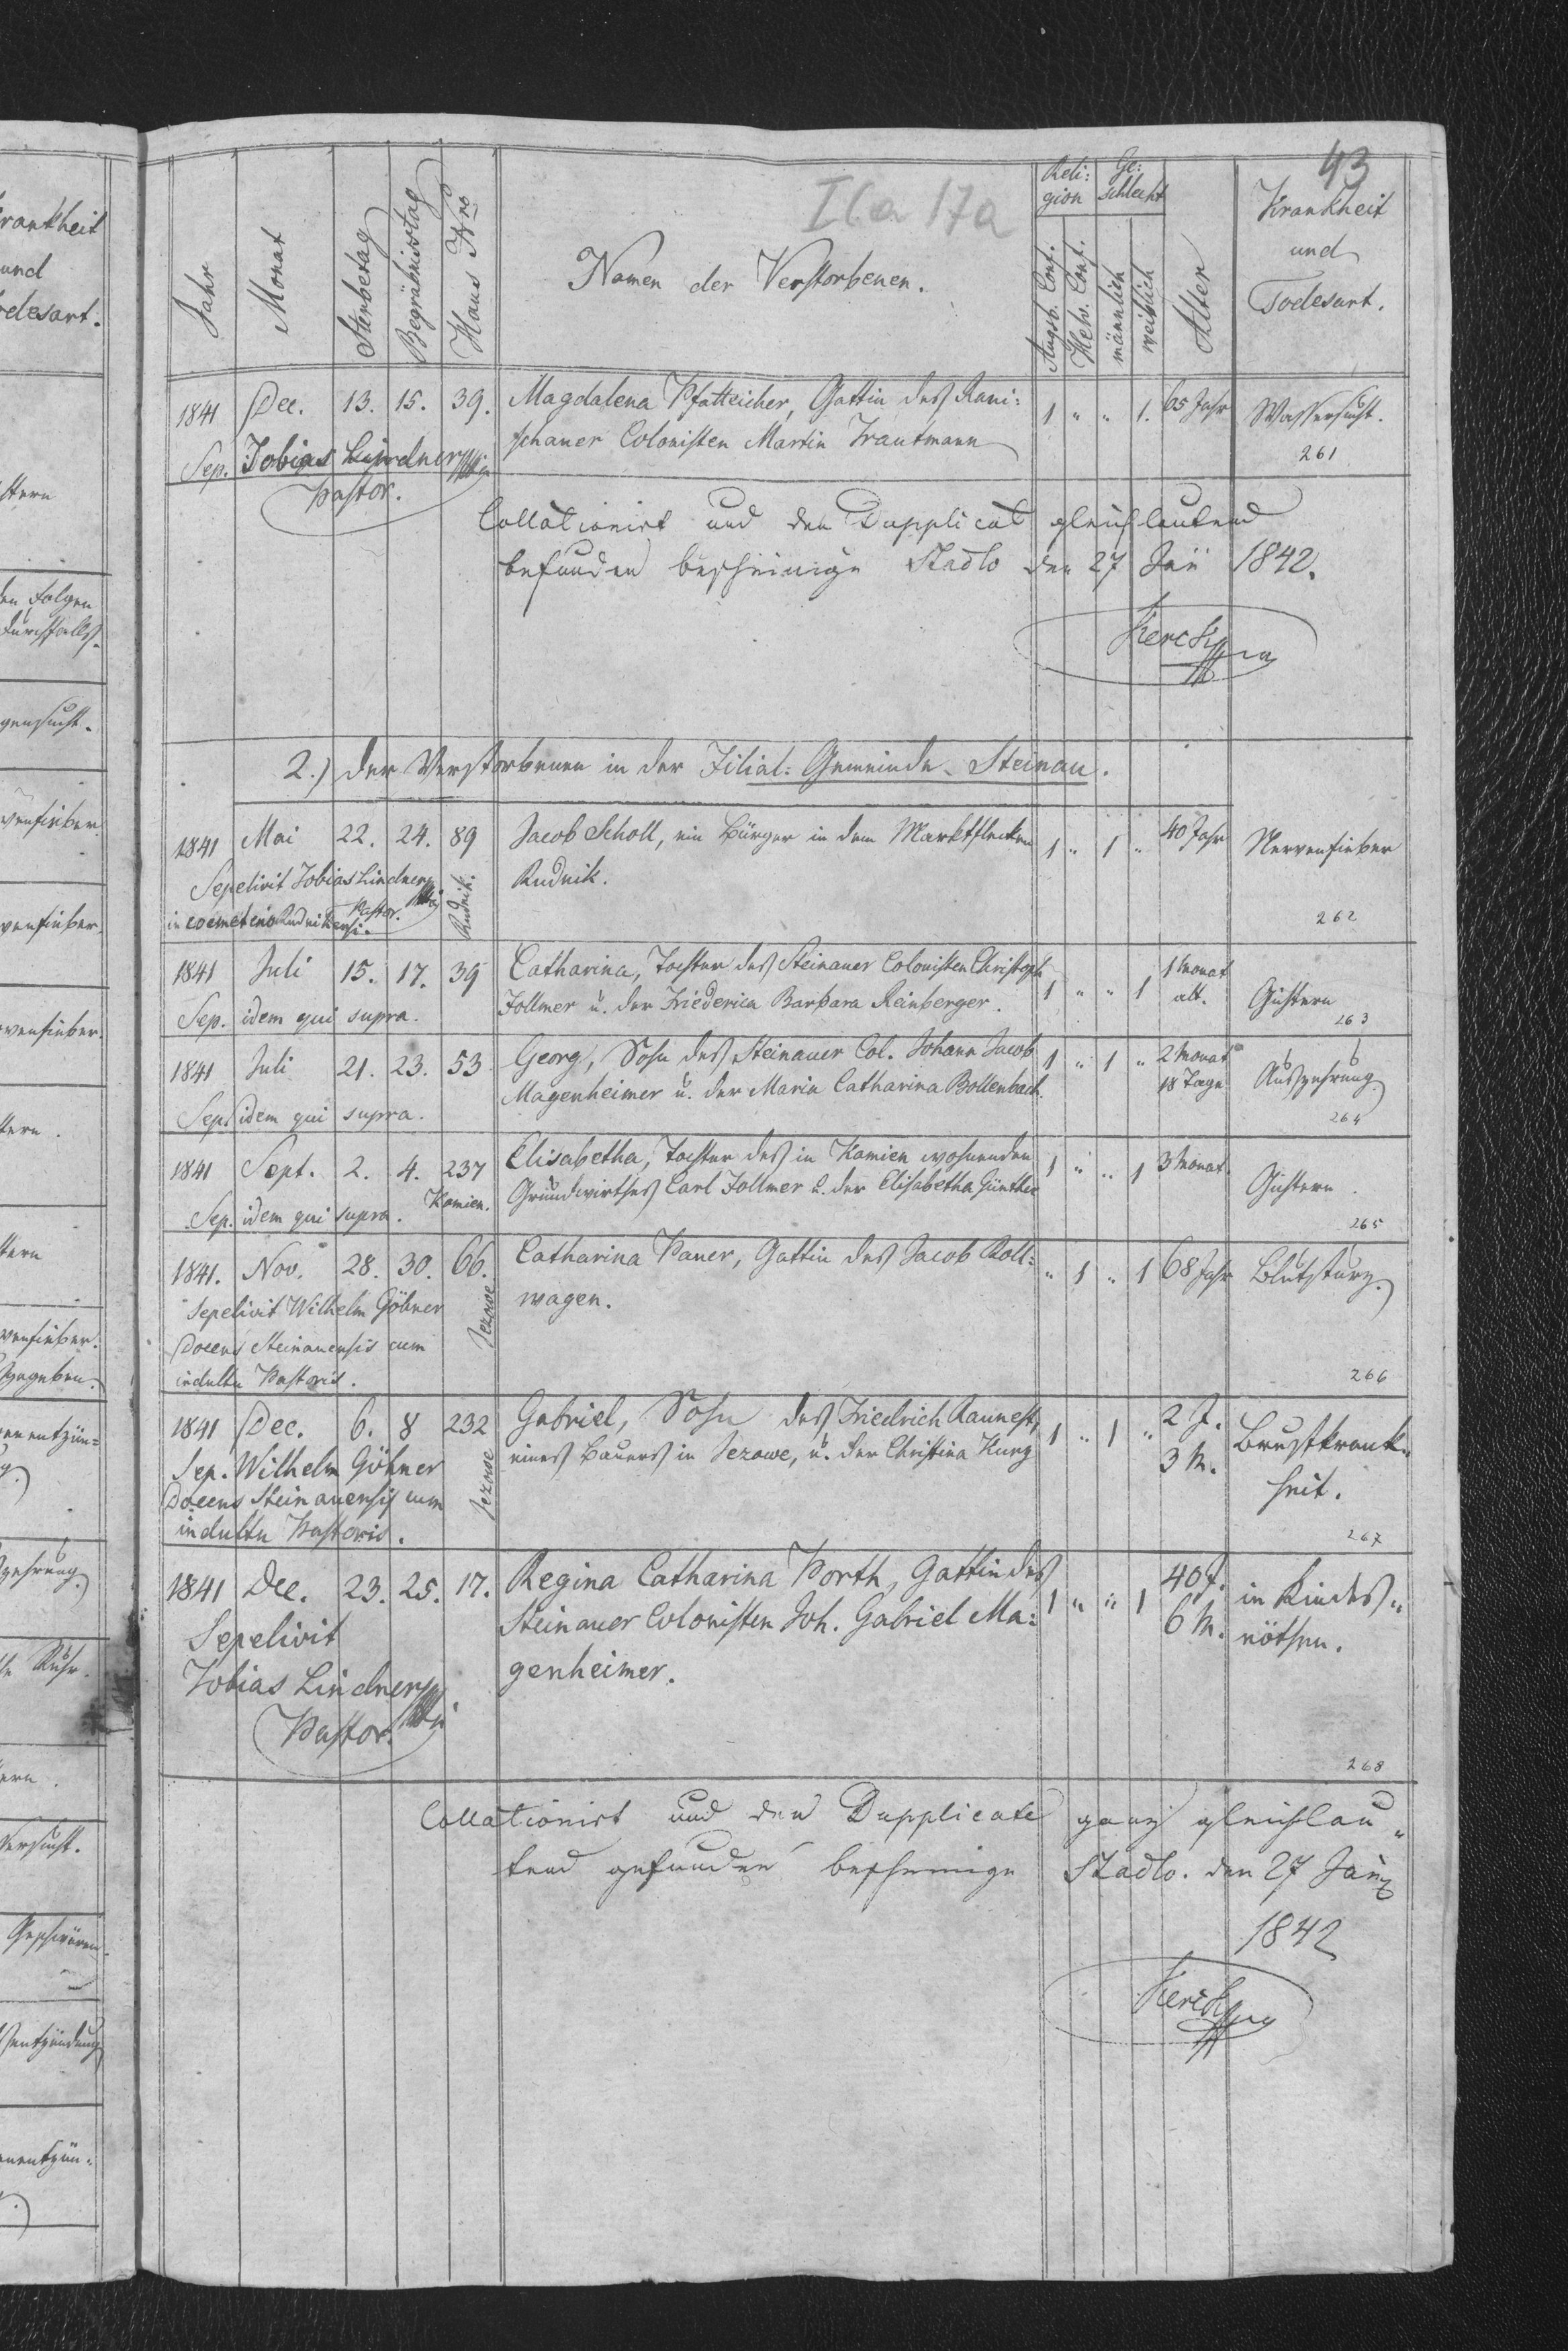 43
I Ca 17a
Jahr Monat Sterbetag Begräbnisstag Haus Nro Namen der Verstorbenen. Reli: gion Augsb. Conf. Helv. Conf. Ge: schlecht männlich weiblich Alter Krankheit und Todesart.
1841 Dec. 13. 15. 39. Magdalena Pfatteicher, Gattin des Rani: 1 " " 1. 65 Jahr Wassersucht.
schauer Colonisten Martin Trautmann
Sep. Tobias Lindner
Pastor.
261
Collationirt und dem Dupplicat gleichlautend
befunden bescheinige Stadlo den 27 Jän 1842.
2.) Der Verstorbenen in der Filial: Gemeinde Steinau.
1841 Mai 22. 24. 89 Jacob Scholl, ein Bürger in dem Marktflecken 1 " 1 " 40 Jahr Nervenfieber
Rudnik.
Sepelivit Tobias Lindner
Pastor.
in coemeterio Rudnikensi.
Rudnik.
262
1841 Juli 15. 17. 39 Catharina, Tochter des Steinauer Colonisten Christoph 1 " " 1 1 Monat alt. Gichtern
Follmer u. der Friederica Barbara Reinberger.
Sep. idem qui supra.
263
1841 Juli 21. 23. 53 Georg, Sohn des Steinauer Col. Johann Jacob 1 " 1 " 2 Monat 18 Tage Auszehrung
Magenheimer u. der Maria Catharina Bollenbach.
Sep. idem qui supra.
264
1841 Sept. 2. 4. 237 Elisabetha, Tochter des in Kamien wohnenden 1 " " 1 3 Monat Gichtern.
Grundwirthes Carl Follmer u. der Elisabetha Günther
Sep. idem qui supra. Kamien.
265
1841. Nov. 28. 30. 66. Catharina Pauer, Gattin des Jacob Roll: " 1 " 1 68 Jahr Blutsturz.
wagen.
Sepelivit Wilhelm Göhner
Docens Steinauensis cum
indultu Pastoris.
Jezowe
266
1841 Dec. 6. 8 232 Gabriel, Sohn des Friedrich 1 " 1 " 2 J. 3 M. Brustkrank"
eines Bauers in Jezowe, u. der Christina Kurz heit.
Sep. Wilhelm Göhner
Docens Steinauensis cum
indultu Pastoris.
Jezowe
267
1841 Dec. 23. 25. 17. Regina Catharina Porth, Gattin des 1 " " 1 40 J. 6 M. in Kindes"
Steinauer Colonisten Joh. Gabriel Ma: nöthen.
genheimer.
Sepelivit
Tobias Lindner
Pastor.
268
Collationirt und dem Dupplicate ganz gleichlau"
tend gefunden bescheinige Stadlo. den 27 Jän
1842